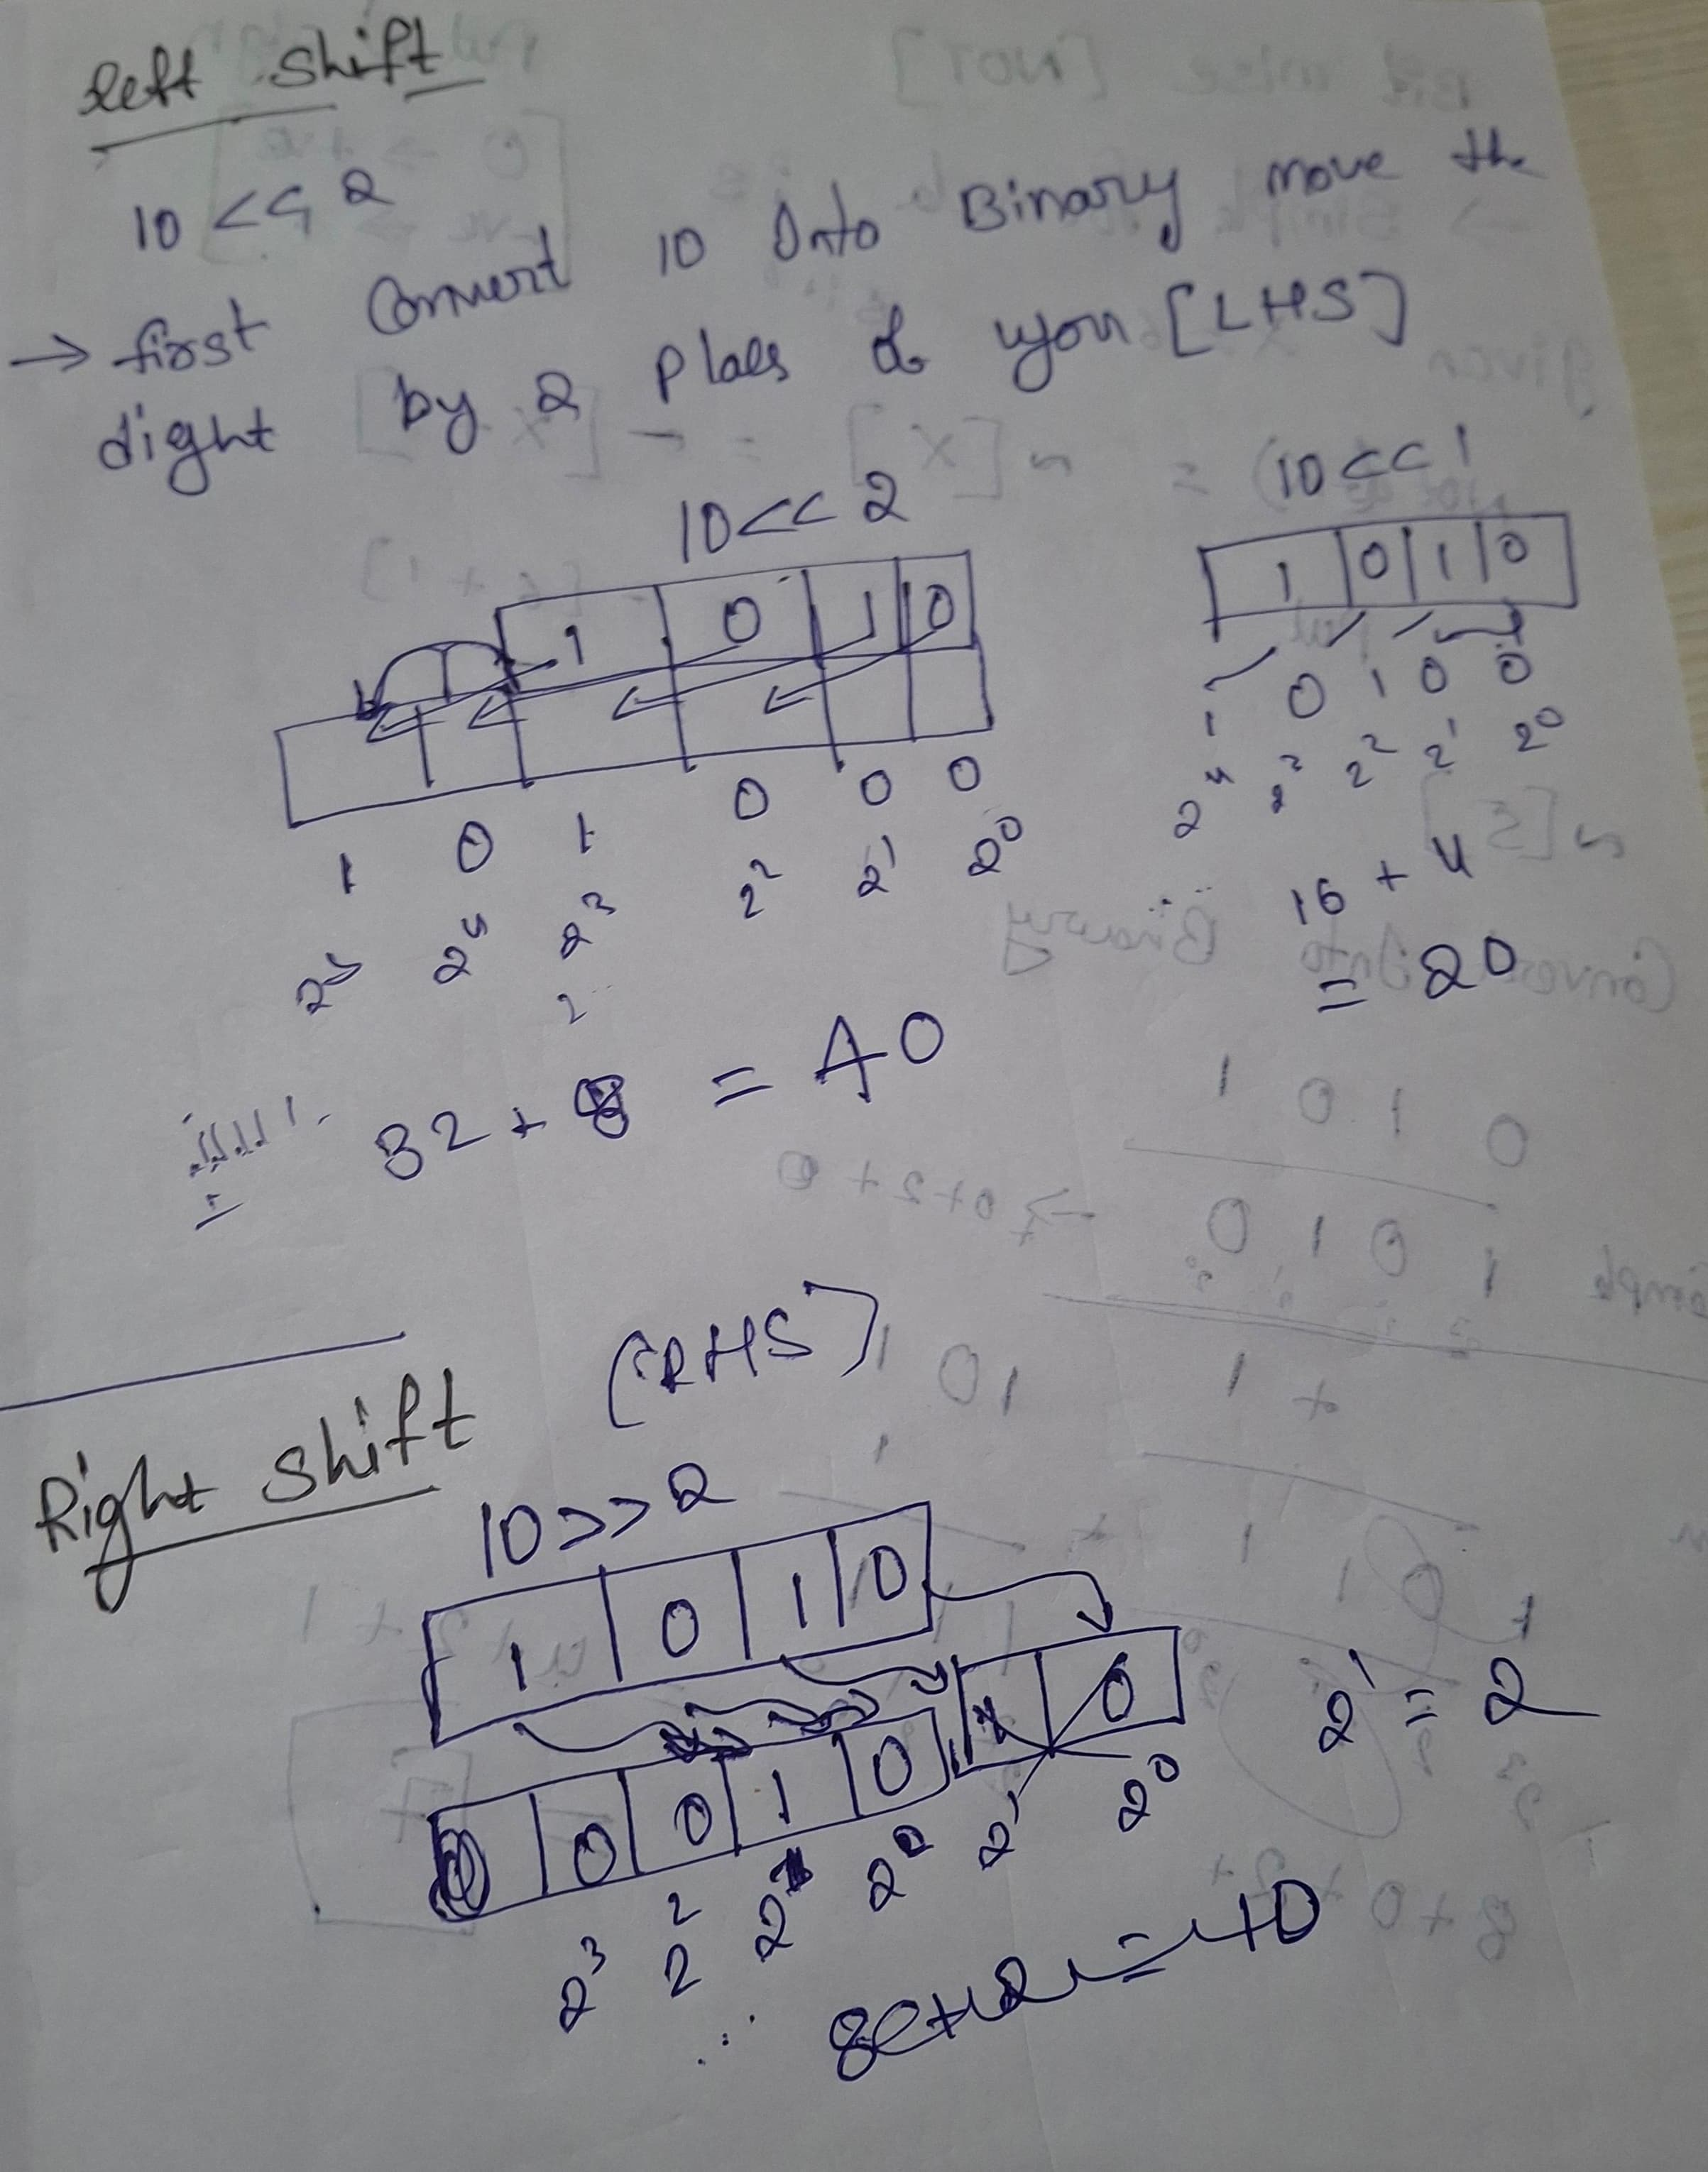 left shift
10 << 2
→ first Convert 10 Into Binary move the
dight by 2 Places of your [LHS]
10<<2
1 0 1 0
0 0 0
1 0 1
2^5 2^4 2^3 2^2 2^1 2^0
2
32 + 8 = 40
10<<1
1 0 1 0
1 0 1 0 0
2^4 2^3 2^2 2^1 2^0
16 + 4
= 20
Right shift (RHS)
10>>2
1 0 1 0
1 0
0 0 1 0
2^3 2^2 2^1 2^0 2^1 2^0
2^1 = 2
8+2 = 10